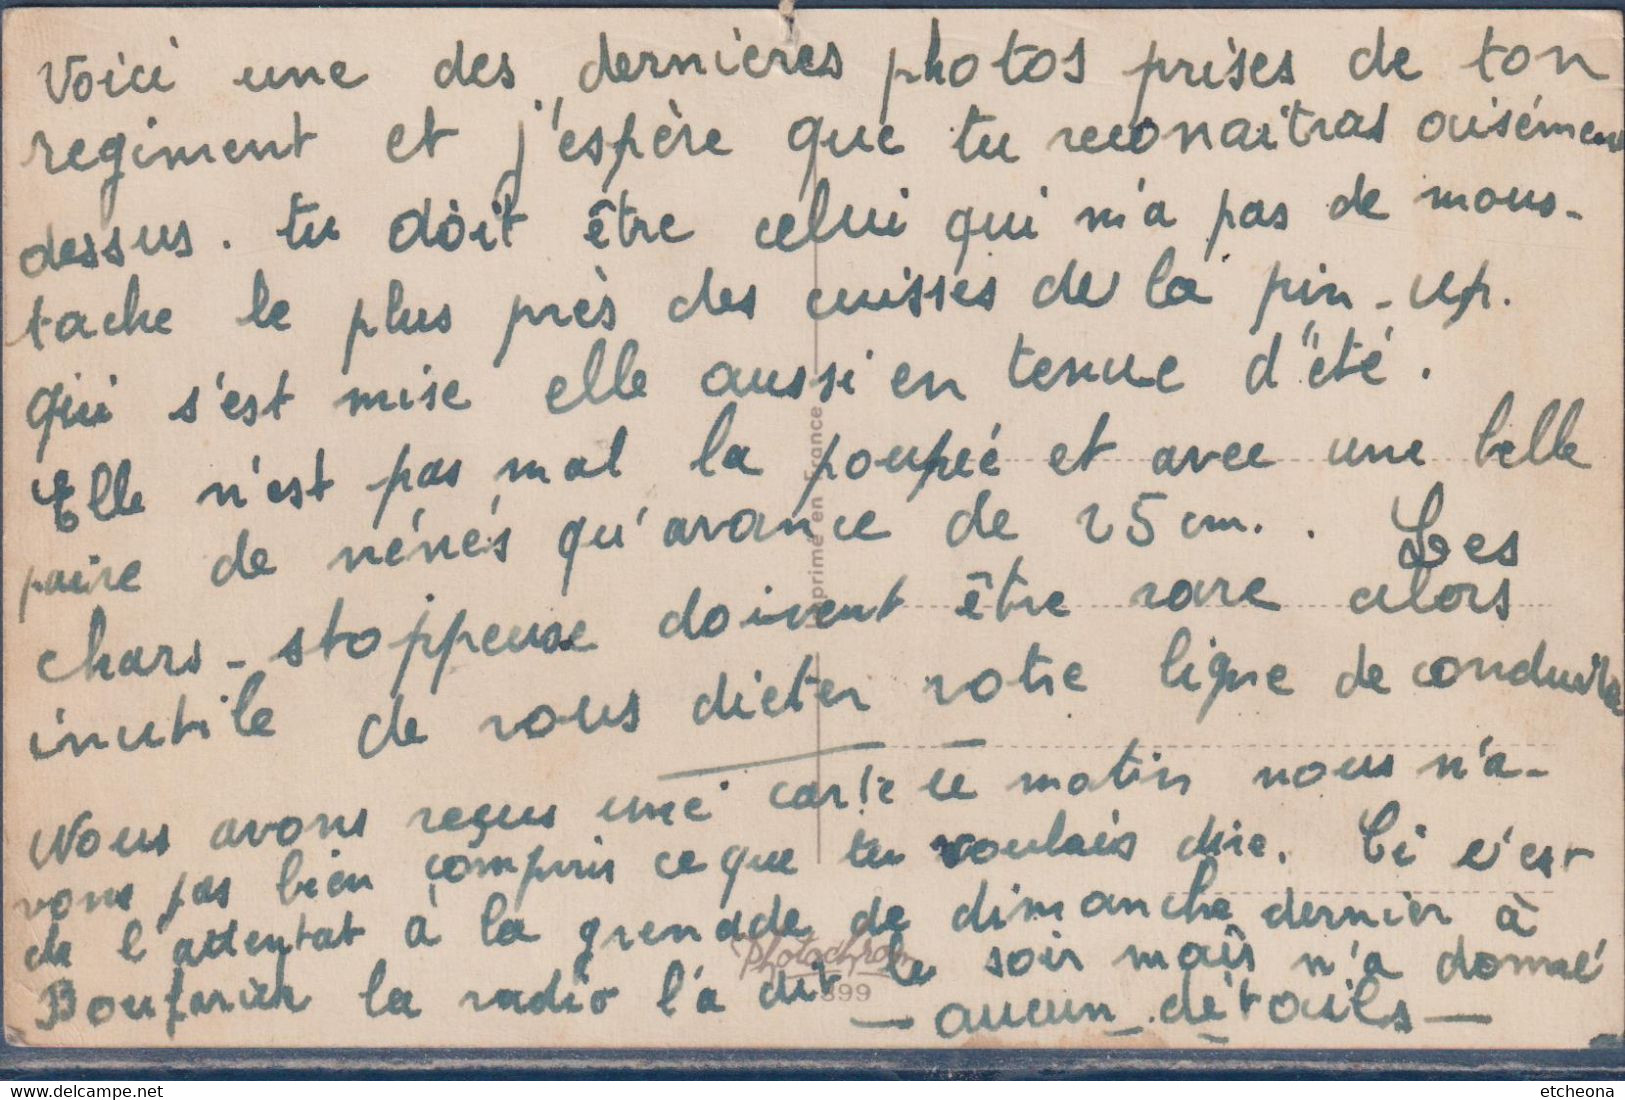 Voici une des dernieres photos prises de ton
regiment et j'espère que tu reconaitras aisément
dessus. tu doit être celui qui m'a pas de mous-
tache le plus près des cuisses de la pin-up.
qui s'est mise elle aussi en tenue d'été.
Elle n'est pas mal la poupée et avec une belle
paire de nénés qu'avance de 25 cm.. Les
chars-stoppeuse doivent être rare alors
inutile de vous dicter votre ligne de conduite
Nous avons reçus une carte ce matin nous n'a-
vons pas bien compris ce que tu voulais dire. Ci c'est
de l'attentat à la grenade de dimanche dernier à
Boufarick la radio l'a dit le soir mais n'a donné
— aucun détails —
Imprimé en France
Photochrom
399
etcheona